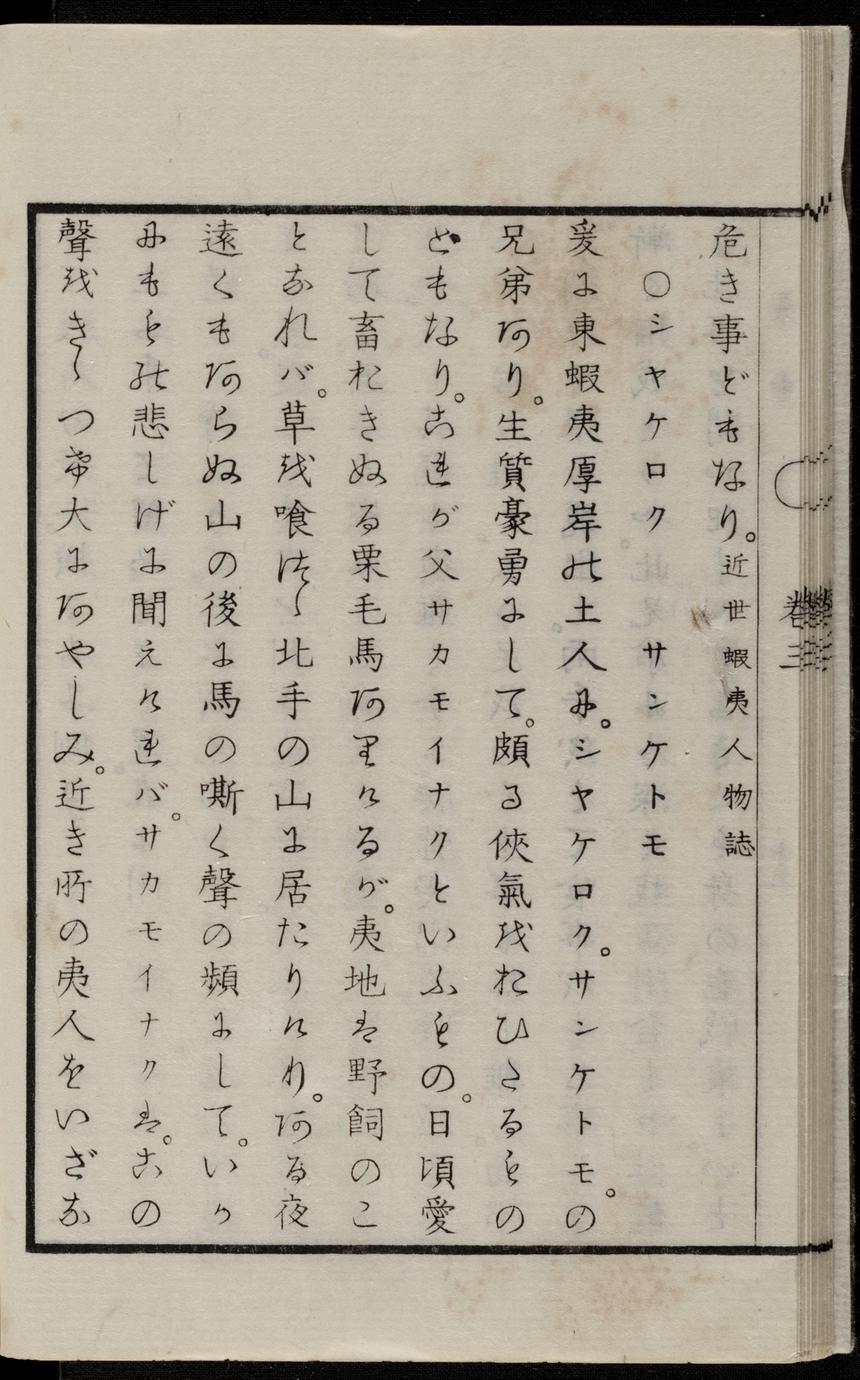 危き事どもなり。近世蝦夷人物誌
〇シヤケロク　サンケトモ
爰に東蝦夷厚岸の土人に。シヤケロク。サンケトモ。の
兄弟あり。生質豪勇にして。頗る俠氣をおひたるもの
どもなり。これが父サカモイナクといふもの。日頃愛
して畜おきぬる栗毛馬ありけるが。夷地は野飼のこ
となれバ。草を喰はしつゝ北手の山に居たりけり。ある夜
遠くもあらぬ山の後に馬の嘶く聲の頻にして。いか
にももの悲しげに聞えけれバ。サカモイナクは。この
聲をきゝつけ大にあやしみ。近き所の夷人をいざな
巻三